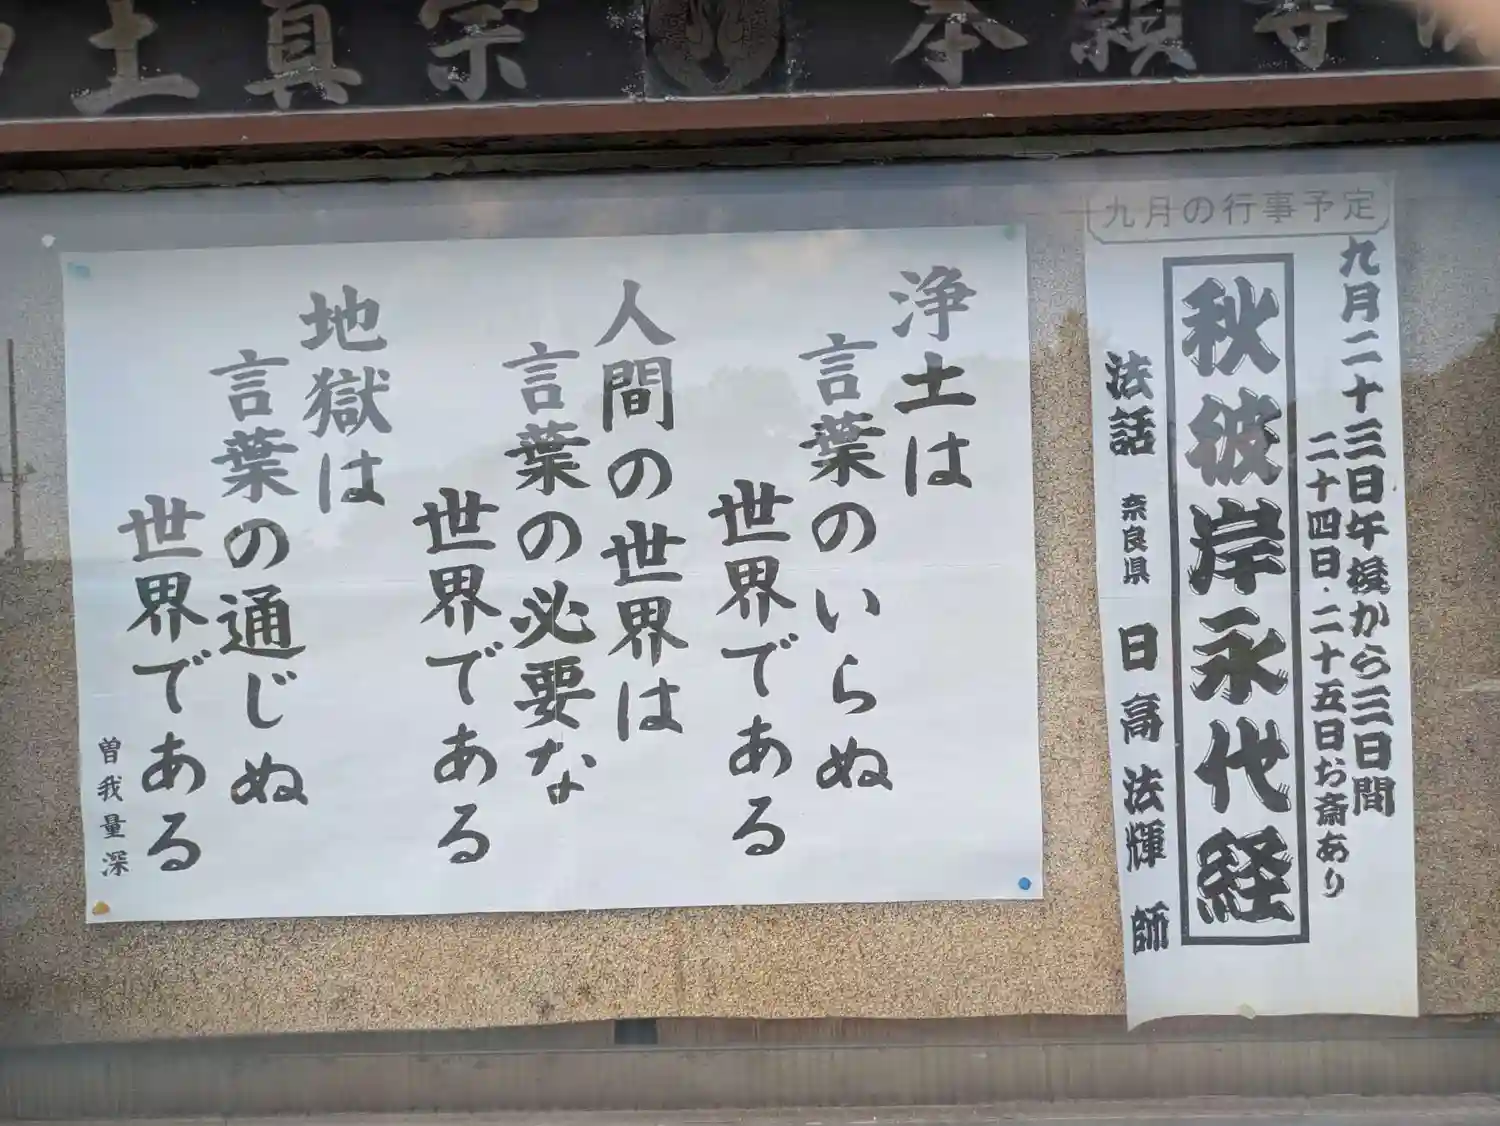 浄土真宗 本願寺派
浄土は
言葉のいらぬ
世界である
人間の世界は
言葉の必要な
世界である
地獄は
言葉の通じぬ
世界である
曽我量深
九月の行事予定
九月二十三日午後から三日間
二十四日・二十五日お斎あり
秋彼岸永代経
法話 奈良県 日高法輝 師